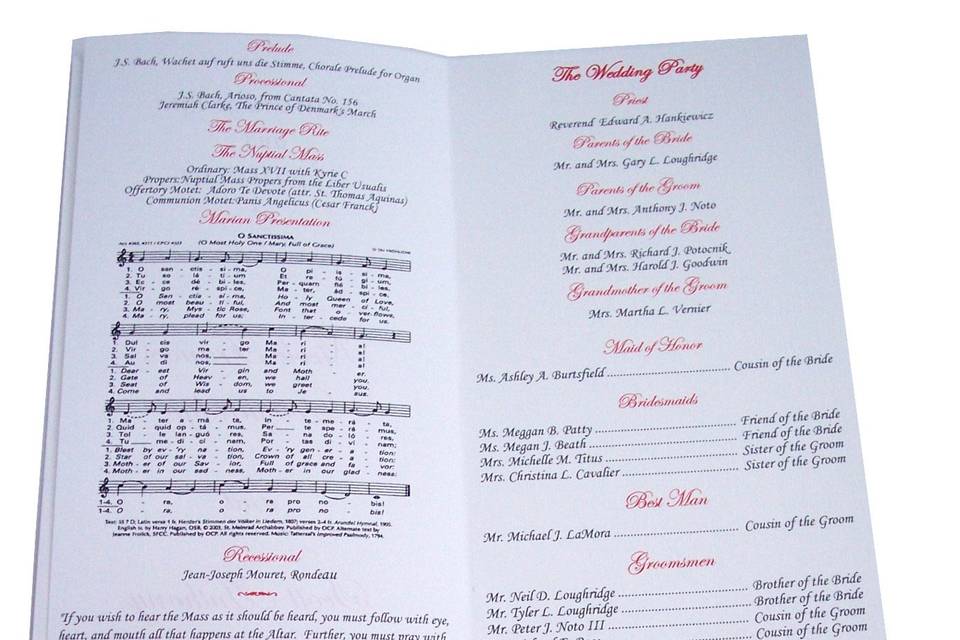 Prelude
J.S. Bach, Wachet auf ruft uns die Stimme, Chorale Prelude for Organ
Processional
J.S. Bach, Arioso, from Cantata No. 156
Jeremiah Clarke, The Prince of Denmark's March
The Marriage Rite
The Nuptial Mass
Ordinary: Mass XVII with Kyrie C
Propers:Nuptial Mass Propers from the Liber Usualis
Offertory Motet: Adoro Te Devote (attr. St. Thomas Aquinas)
Communion Motet:Panis Angelicus (Cesar Franck)
Marian Presentation
O Sanctissima
(O Most Holy One / Mary, Full of Grace)
1. O san - ctis - si - ma, O pi - is - si - ma,
2. Tu so - lá - ti - um Et re - fú - gi - um,
3. Ec - ce dé - bi - les, Per - quam flé - bi - les,
4. Vir - go ré - spi - ce, Ma - ter, ád - spi - ce,
1. O San - ctis - si - ma, Ho - ly Queen of Love,
2. O most beau - ti - ful, And most mer - ci - ful,
3. Ma - ry, Mys - tic Rose, Font that o - ver-flows,
4. Ma - ry, plead for us; In - ter - cede for us.
1. Dul - cis vir - go Ma - ri - a!
2. Vir - go ma - ter Ma - ri - a!
3. Sal - va nos, Ma - ri - a!
4. Au - di nos, Ma - ri - a!
1. Dear - est Vir - gin and Moth - er.
2. Gate of Heav - en, we hail you.
3. Seat of Wis - dom, we greet you.
4. Come and lead us to Je - sus.
1. Ma - ter a - má - ta, In - te - me - rá - ta,
2. Quid - quid op - tá - mus, Per te spe - rá - mus,
3. Tol - le lan - guó - res, Sa - na do - ló - res,
4. Tu me - di - ci - nam, Por - tas di - ví - nam;
1. Blest by ev - 'ry na - tion, Ev - 'ry gen - er - a - tion:
2. Star of our sal - va - tion, Crown of all cre - a - tion:
3. Moth - er of our Sav - ior, Full of grace and fa - vor:
4. Moth - er in our sad - ness, Moth - er in our glad - ness:
1-4. O - ra, o - ra pro no - bis!
1-4. O - ra, o - ra pro no - bis!
Text: 55 7 D; Latin verse 1 fr. Herder's Stimmen der Völker in Liedern, 1807; verses 2-4 fr. Arundel Hymnal, 1905.
English tr. by Harry Hagan, OSB, © 2003, St. Meinrad Archabbey. Published by OCP. Alternate text by
Jeanne Frolick, SFCC. Published by OCP. All rights reserved. Music: Tattersall's Improved Psalmody, 1794.
Recessional
Jean-Joseph Mouret, Rondeau
"If you wish to hear the Mass as it should be heard, you must follow with eye,
heart, and mouth all that happens at the Altar. Further, you must pray with
The Wedding Party
Priest
Reverend Edward A. Hankiewicz
Parents of the Bride
Mr. and Mrs. Gary L. Loughridge
Parents of the Groom
Mr. and Mrs. Anthony J. Noto
Grandparents of the Bride
Mr. and Mrs. Richard J. Potocnik
Mr. and Mrs. Harold J. Goodwin
Grandmother of the Groom
Mrs. Martha L. Vernier
Maid of Honor
Ms. Ashley A. Burtsfield ........ Cousin of the Bride
Bridesmaids
Ms. Meggan B. Patty ........ Friend of the Bride
Ms. Megan J. Beath ........ Friend of the Bride
Mrs. Michelle M. Titus ........ Sister of the Groom
Mrs. Christina L. Cavalier ........ Sister of the Groom
Best Man
Mr. Michael J. LaMora ........ Cousin of the Groom
Groomsmen
Mr. Neil D. Loughridge ........ Brother of the Bride
Mr. Tyler L. Loughridge ........ Brother of the Bride
Mr. Peter J. Noto III ........ Cousin of the Groom
Cousin of the Groom